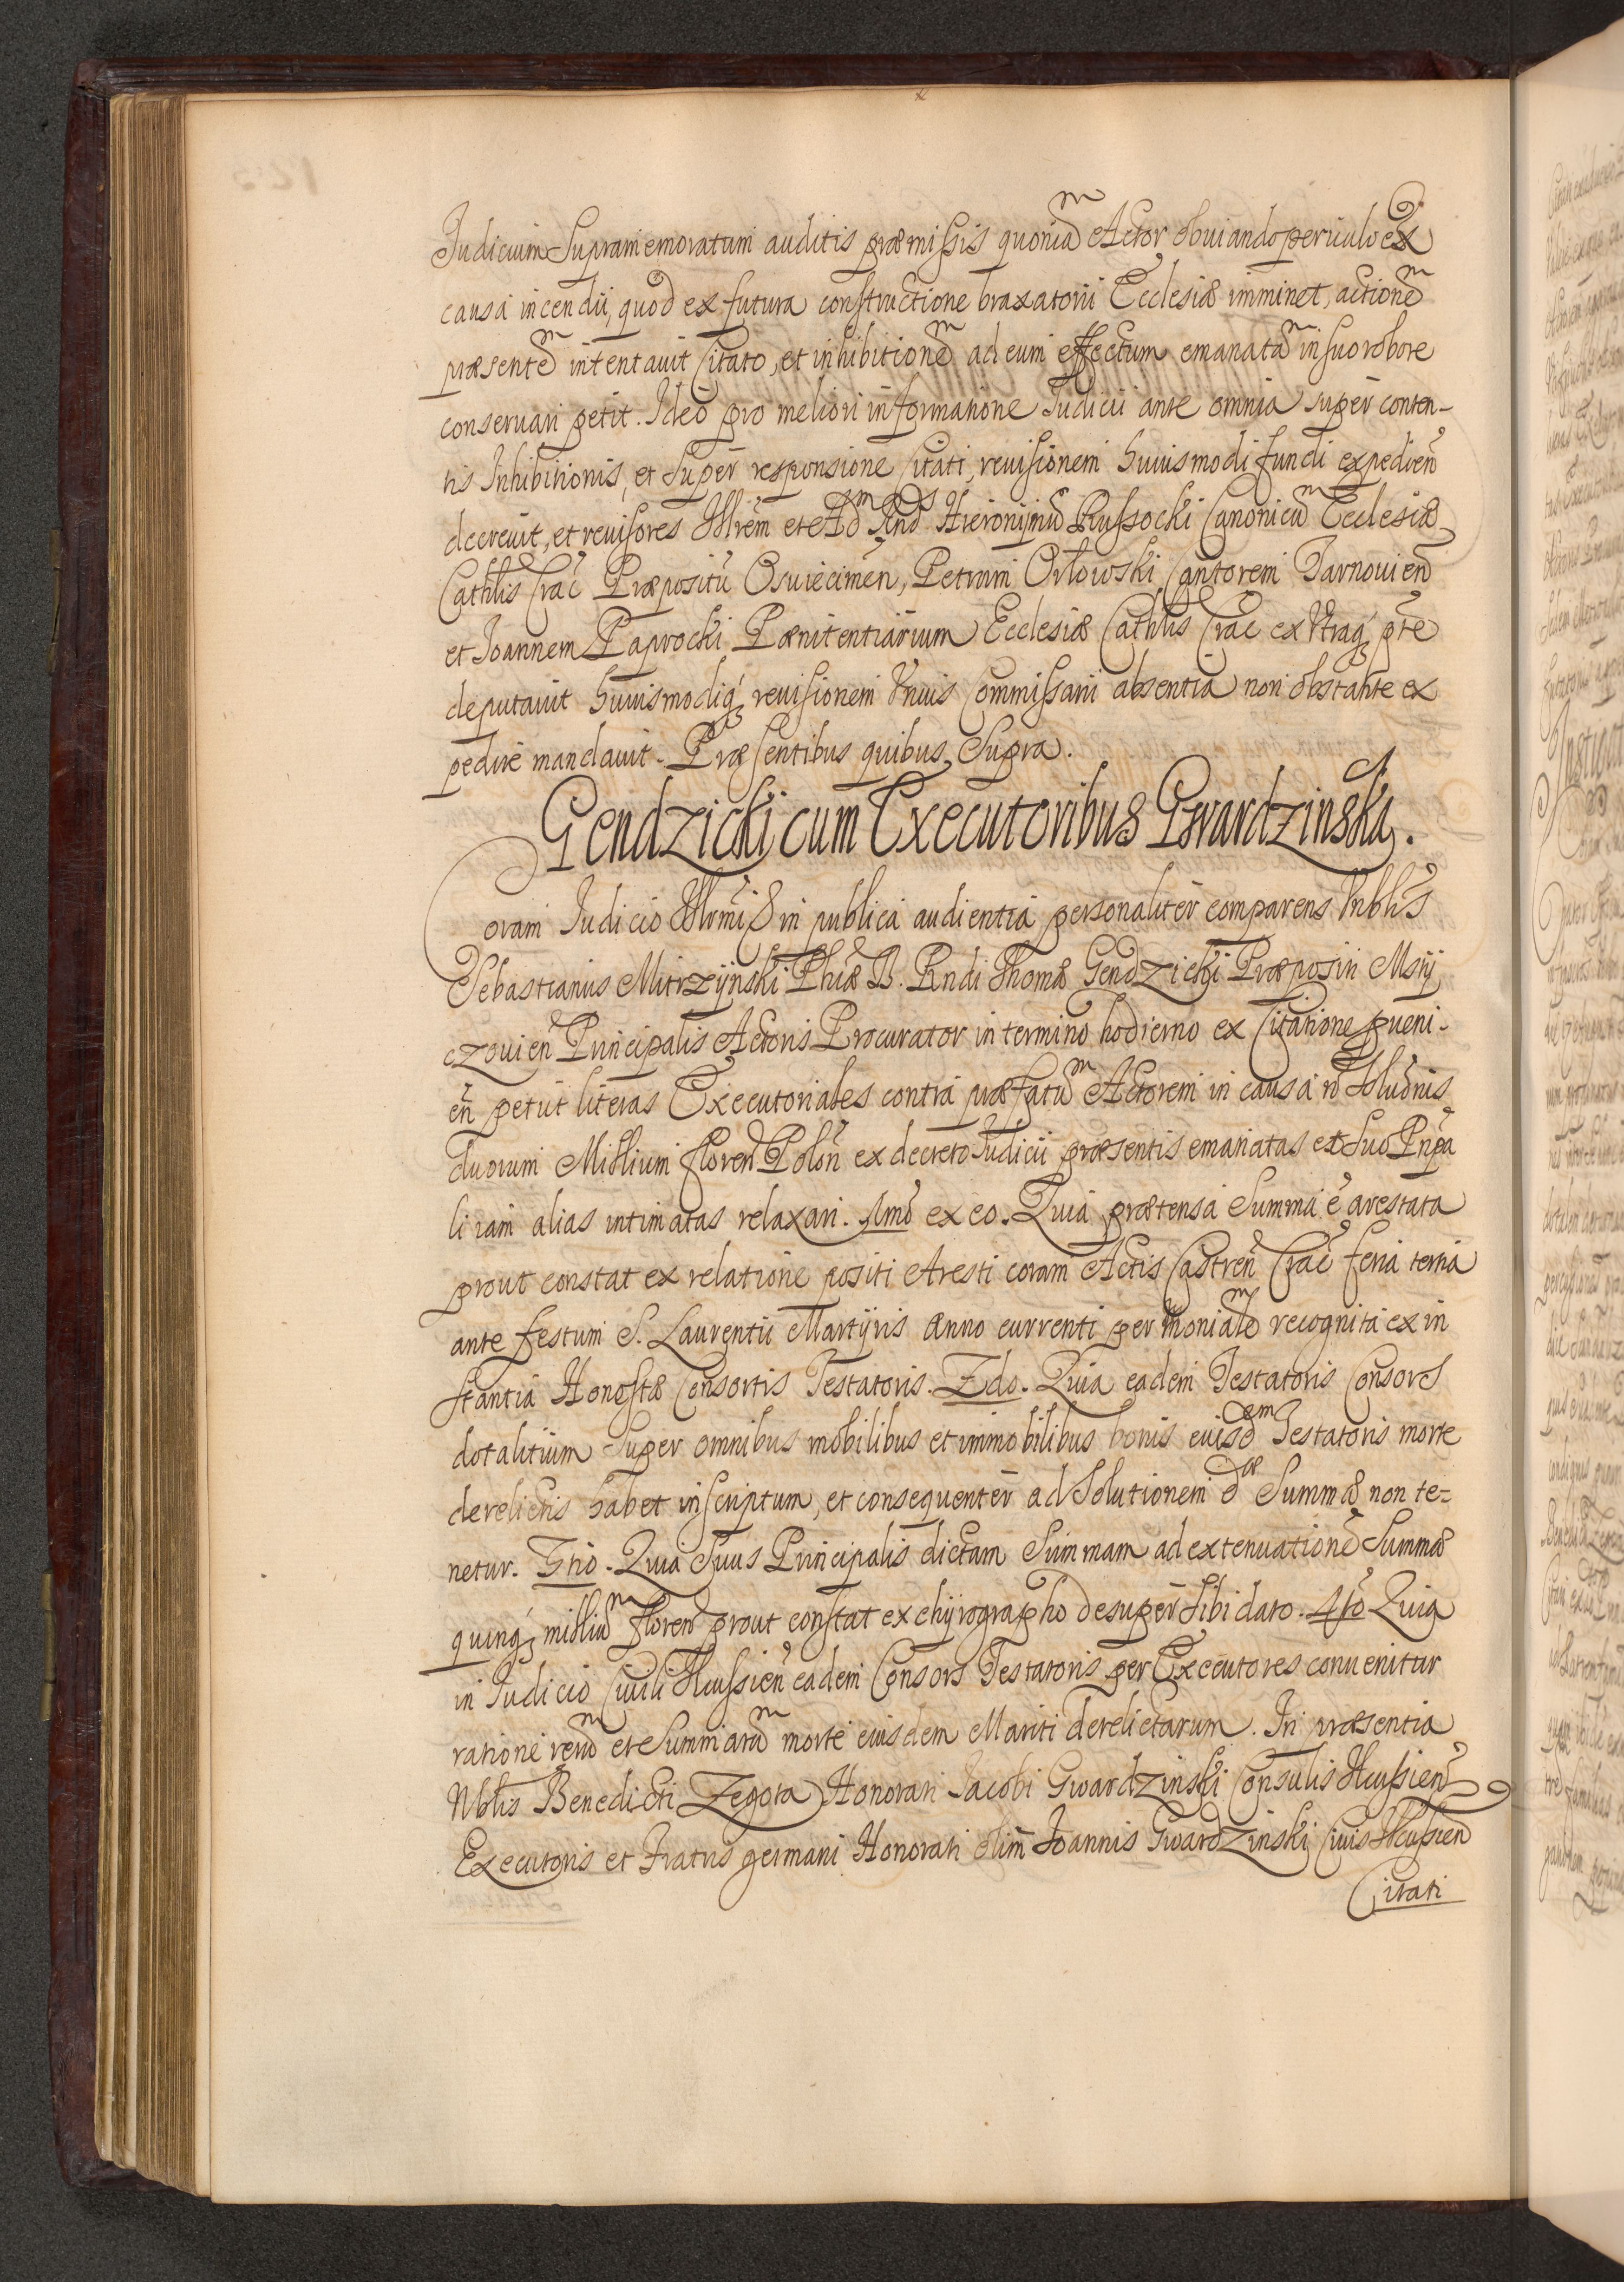 Judicium Supramemoratum auditis præmissis quoniam Actor obuiando periculo ex
causa incendii, quod ex futura constructione braxatorii Ecclesiæ imminet, actionem
præsentem intentauit Citato, et inhibitionem ad eum effectum emanatam in suo robore
conseruari petit. Ideo pro meliori informatione Judicii ante omnia super conten-
tis Inhibitionis, et super responsione Citati, reuisionem huiusmodi fundi expedien
decreuit, et reuisores Illrem et Adm Rnds Hieronijmū Russocki Canonicum Ecclesiæ
Cathlis Crac Præpositū Osuiecimen, Petrum Orłowski Cantorem Tarnouien
et Joannem Paprocki Pænitentiarium Ecclesiæ Cathlis Crac ex vtraq pte
deputauit huiusmodiq reuisionem vnius Commissarii absentia non obstante ex
pedire mandauit. Præsentibus quibus Supra.
Gendzicki cum Executoribus Gwardzinski.
Coram Judicio Illrmi in publica audientia personaliter comparens Nblis
Sebastianus Mirzijnski Phiæ B. Rndi Thomæ Gendzicki Præpositi Msty
czouien Principalis Actoris Procurator in termino hodierno ex Citatione pueni-
en petiit literas Executoriales contra præfatum Actorem in causa n solunis
duorum Millium floren Polon ex decreto Judicii præsentis emanatas et suo Prpa
li iam alias intimatas relaxari. Imo ex eo. Quia prætensa Summa e arestata
prout constat ex relatione positi Aresti coram Actis Castren Crac feria tertia
ante festum S. Laurentii Martijris Anno currenti per monialem recognita ex in
stantia Honestæ Consortis Testatoris. 2do. Quia eadem Testatoris Consors
dotalitium super omnibus mobilibus et immobilibus bonis eiusdem Testatoris morte
derelictis habet inscriptum, et consequenter ad solutionem dæ Summæ non te-
netur. 3tio. Quia Suus Principalis dictam Summam ad extenuationē Summæ
quinq millium floren prout constat ex chijrographo desuper sibi dato. 4to Quia
in Judicio Ciuili Ilcussien eadem Consors Testatoris per Executores conuenitur
ratione rerum et Summarum morte eiusdem Mariti derelictarum. In præsentia
Nblis Benedicti Zegota Honorati Jacobi Gwardzinski Consulis Ilcussien
Executoris et Fratris germani Honorati olim Joannis Gwardzinski Ciuis Ilcussien
Citati